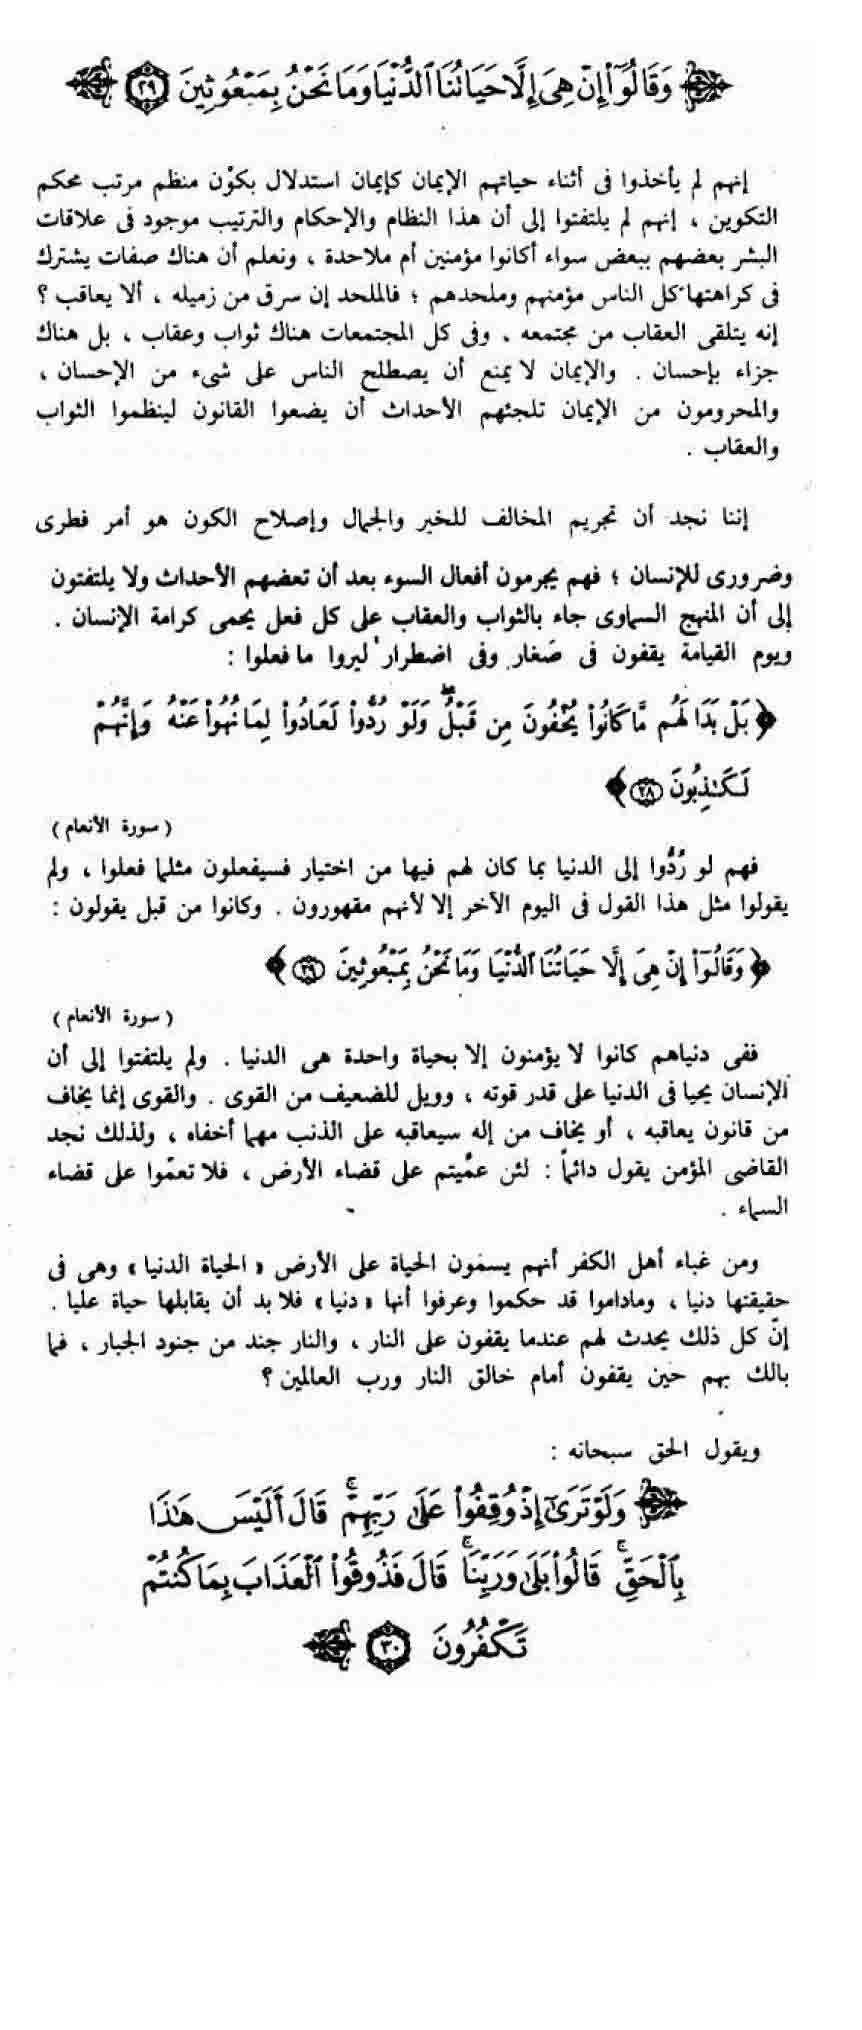 وَقَالُوٓا۟ إِنْ هِىَ إِلَّا حَيَاتُنَا ٱلدُّنْيَا وَمَا نَحْنُ بِمَبْعُوثِينَ ٢٩
إنهم لم يأخذوا فى أثناء حياتهم الإيمان كإيمان استدلال بكوْن منظم مرتب محكم
التكوين ، إنهم لم يلتفتوا إلى أن هذا النظام والإحكام والترتيب موجود فى علاقات
البشر بعضهم ببعض سواء أكانوا مؤمنين أم ملاحدة ، ونعلم أن هناك صفات يشترك
فى كراهتها كل الناس مؤمنهم وملحدهم ؛ فالملحد إن سرق من زميله ، ألا يعاقب ؟
إنه يتلقى العقاب من مجتمعه . وفى كل المجتمعات هناك ثواب وعقاب ، بل هناك
جزاء بإحسان . والإيمان لا يمنع أن يصطلح الناس على شىء من الإحسان ،
والمحرومون من الإيمان تلجئهم الأحداث أن يضعوا القانون لينظموا الثواب
والعقاب .
إننا نجد أن تجريم المخالف للخير والجمال وإصلاح الكون هو أمر فطرى
وضرورى للإنسان ؛ فهم يجرمون أفعال السوء بعد أن تعضهم الأحداث ولا يلتفتون
إلى أن المنهج السماوى جاء بالثواب والعقاب على كل فعل يحمى كرامة الإنسان .
ويوم القيامة يقفون فى صَغار وفى اضطرار ليروا ما فعلوا :
﴿ بَلْ بَدَا لَهُم مَّا كَانُوا۟ يُخْفُونَ مِن قَبْلُ ۖ وَلَوْ رُدُّوا۟ لَعَادُوا۟ لِمَا نُهُوا۟ عَنْهُ وَإِنَّهُمْ
لَكَـٰذِبُونَ ٢٨ ﴾
( سورة الأنعام )
فهم لو رُدُّوا إلى الدنيا بما كان لهم فيها من اختيار فسيفعلون مثلما فعلوا ، ولم
يقولوا مثل هذا القول فى اليوم الآخر إلا لأنهم مقهورون . وكانوا من قبل يقولون :
﴿ وَقَالُوٓا۟ إِنْ هِىَ إِلَّا حَيَاتُنَا ٱلدُّنْيَا وَمَا نَحْنُ بِمَبْعُوثِينَ ٢٩ ﴾
( سورة الأنعام )
ففى دنياهم كانوا لا يؤمنون إلا بحياة واحدة هى الدنيا . ولم يلتفتوا إلى أن
الإنسان يحيا فى الدنيا على قدر قوته ، وويل للضعيف من القوى . والقوى إنما يخاف
من قانون يعاقبه ، أو يخاف من إله سيعاقبه على الذنب مهما أخفاه ، ولذلك نجد
القاضى المؤمن يقول دائماً : لئن عمَّيتم على قضاء الأرض ، فلا تعمّوا على قضاء
السماء .
ومن غباء أهل الكفر أنهم يسمون الحياة على الأرض « الحياة الدنيا » وهى فى
حقيقتها دنيا ، وماداموا قد حكموا وعرفوا أنها « دنيا » فلا بد أن يقابلها حياة عليا .
إنّ كل ذلك يحدث لهم عندما يقفون على النار ، والنار جند من جنود الجبار ، فما
بالك بهم حين يقفون أمام خالق النار ورب العالمين ؟
ويقول الحق سبحانه :
وَلَوْ تَرَىٰٓ إِذْ وُقِفُوا۟ عَلَىٰ رَبِّهِمْ ۚ قَالَ أَلَيْسَ هَـٰذَا
بِٱلْحَقِّ ۚ قَالُوا۟ بَلَىٰ وَرَبِّنَا ۚ قَالَ فَذُوقُوا۟ ٱلْعَذَابَ بِمَا كُنتُمْ
تَكْفُرُونَ ٣٠